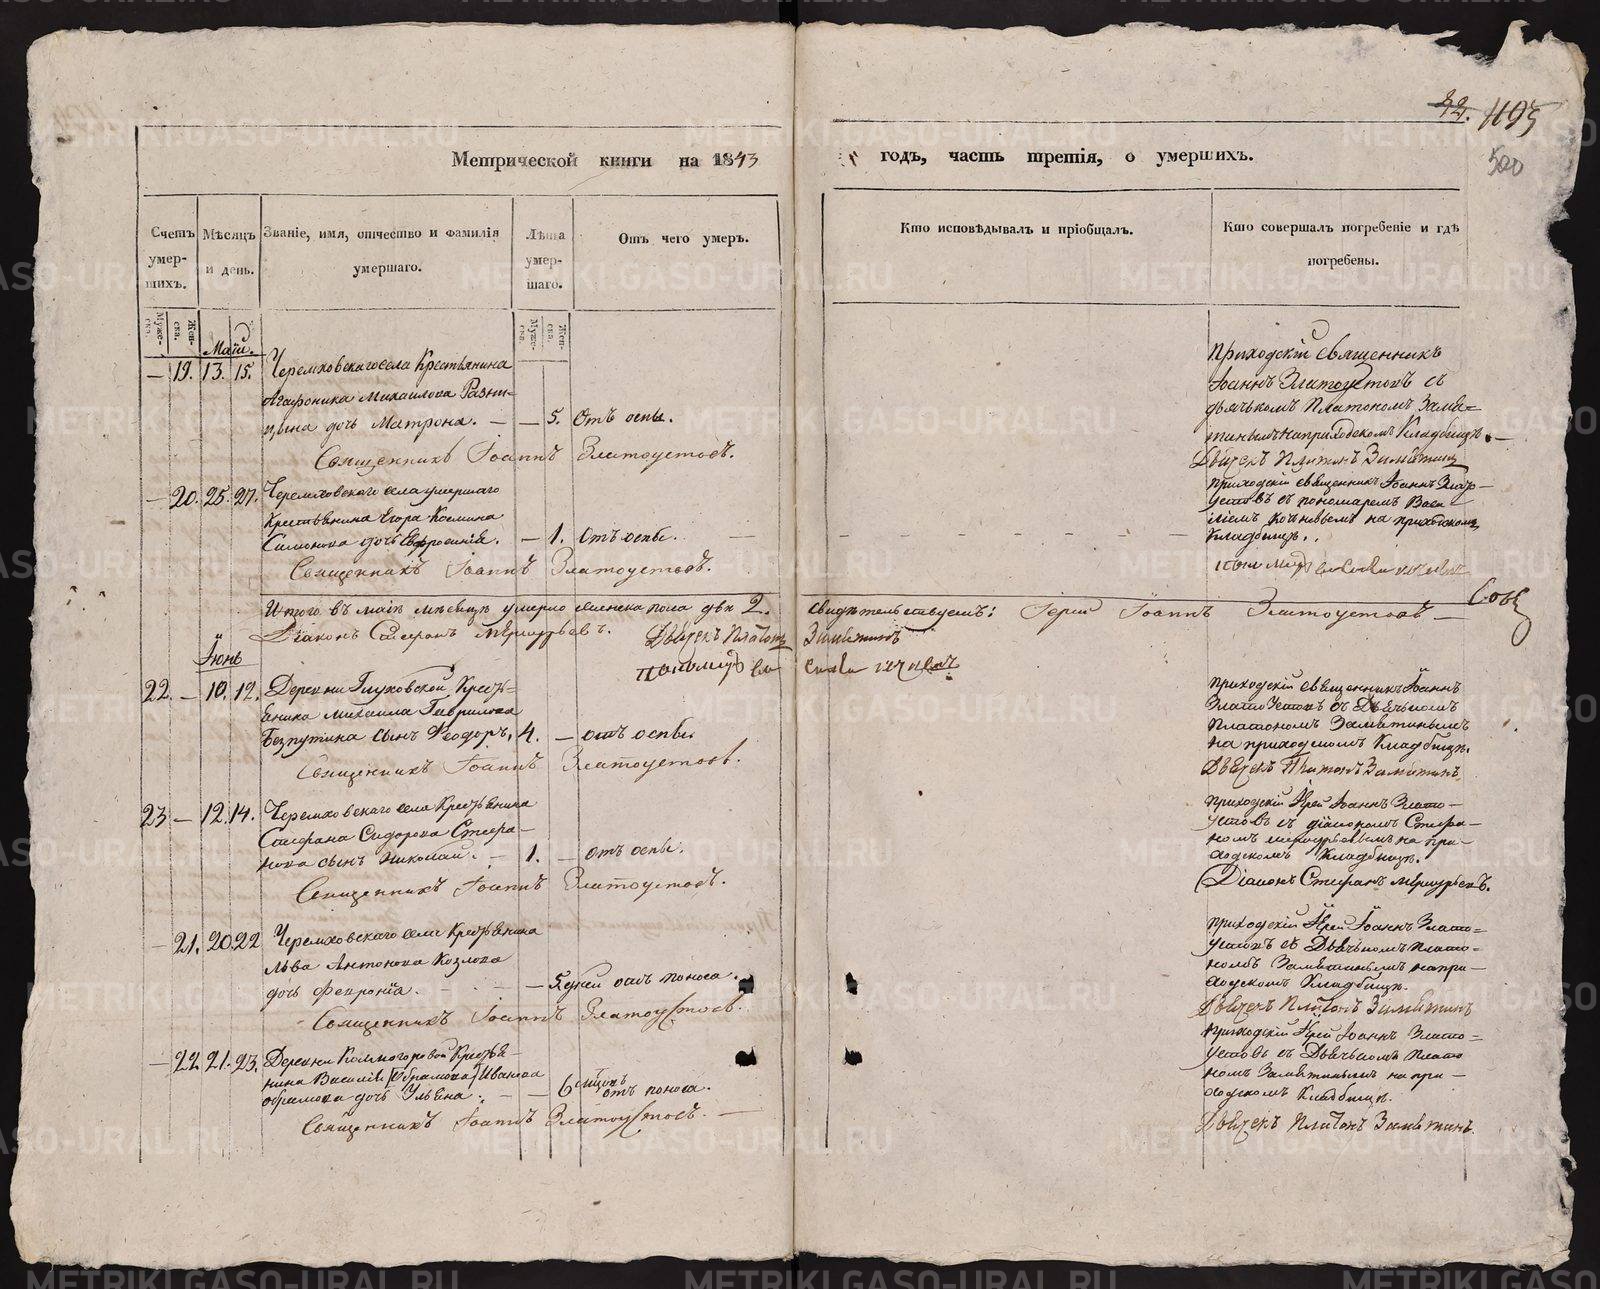 22. 1195
500
Метрической книги на 1843 годъ, часть третія, о умершихъ.
Счетъ умер-
шихъ.
Мѣсяцъ
и день.
Званіе, имя, отчество и фамилія
умершаго.
Лѣта
умер-
шаго.
Отъ чего умеръ.
Кто исповѣдывалъ и пріобщалъ.
Кто совершалъ погребеніе и гдѣ
погребены.
Муже-
ска.
Жен-
ска.
Муже-
ска.
Жен-
ска.
Маій.
— 19. 13. 15. Черемховскаго села Крестьянина
Агафоника Михаилова
дочь Матрона. — — 5. Отъ оспы.
Священникъ Іоаннъ Златоустовъ.
Приходскій священникъ
Іоаннъ Златоустовъ съ
дьячькомъ Платономъ Замя=
тинымъ на приходскомъ Кладбищѣ. —
Дьячекъ Платонъ Замятинъ
— 20. 25. 27. Черемховскаго села умершаго
Крестьянина Егора Космина
Симонова дочь Евфросинія. — 1. Отъ оспы.
Священникъ Іоаннъ Златоустовъ.
приходскій священникъ Іоаннъ Злато-
устовъ съ пономаремъ Васи
ліемъ на приходскомъ
Кладбищѣ.
Итого въ маіѣ мѣсяцѣ умерло женска пола двѣ 2. свидѣтельствуемъ: Іерей Іоаннъ Златоустовъ —
Діаконъ Стефанъ Меркурьевъ. Дьячекъ Платонъ Замятинъ
Іюнь
22. — 10. 12. Деревни Глуховской Кресть-
янина Михаила Гаврилова
Безпутина сынъ Ѳеодоръ. 4. — отъ оспы.
Священникъ Іоаннъ Златоустовъ.
приходскій священникъ Іоаннъ
Златоустовъ съ Дьячькомъ
Платономъ Замятинымъ
на приходскомъ Кладбищѣ.
Дьячекъ Платонъ Замятинъ
23 — 12. 14. Черемховскаго села Крестьянина
Стефана Сидорова Стефа-
нова сынъ Николай. — 1. — отъ оспы.
Священникъ Іоаннъ Златоустовъ.
приходскій Іерей Іоаннъ Злато-
устовъ съ діакономъ Стефа-
номъ Меркурьевымъ на при-
ходскомъ Кладбищѣ.
Діаконъ Стефанъ Меркурьевъ.
— 21. 20 22 Черемховскаго села Крестьянина
Льва Антонова Козлова
дочь Февронія. — — 5. дней отъ поноса.
Священникъ Іоаннъ Златоустовъ.
приходскій Іерей Іоаннъ Злато=
устовъ съ Дьячькомъ Плато-
номъ Замятинымъ на при-
ходскомъ Кладбищѣ.
Дьячекъ Платонъ Замятинъ
— 22. 21. 23. Деревни Колмогоровой Крестья-
нина Василія [Абрамова] Иванова
Абрамова дочь Ульяна. — — 6 мѣсяцъ отъ поноса.
Священникъ Іоаннъ Златоустовъ. —
приходскій Іерей Іоаннъ Злато=
устовъ съ Дьячькомъ Плато
номъ Замятинымъ на при-
ходскомъ Кладбищѣ.
Дьячекъ Платонъ Замятинъ.
METRIKI.GASO-URAL.RU